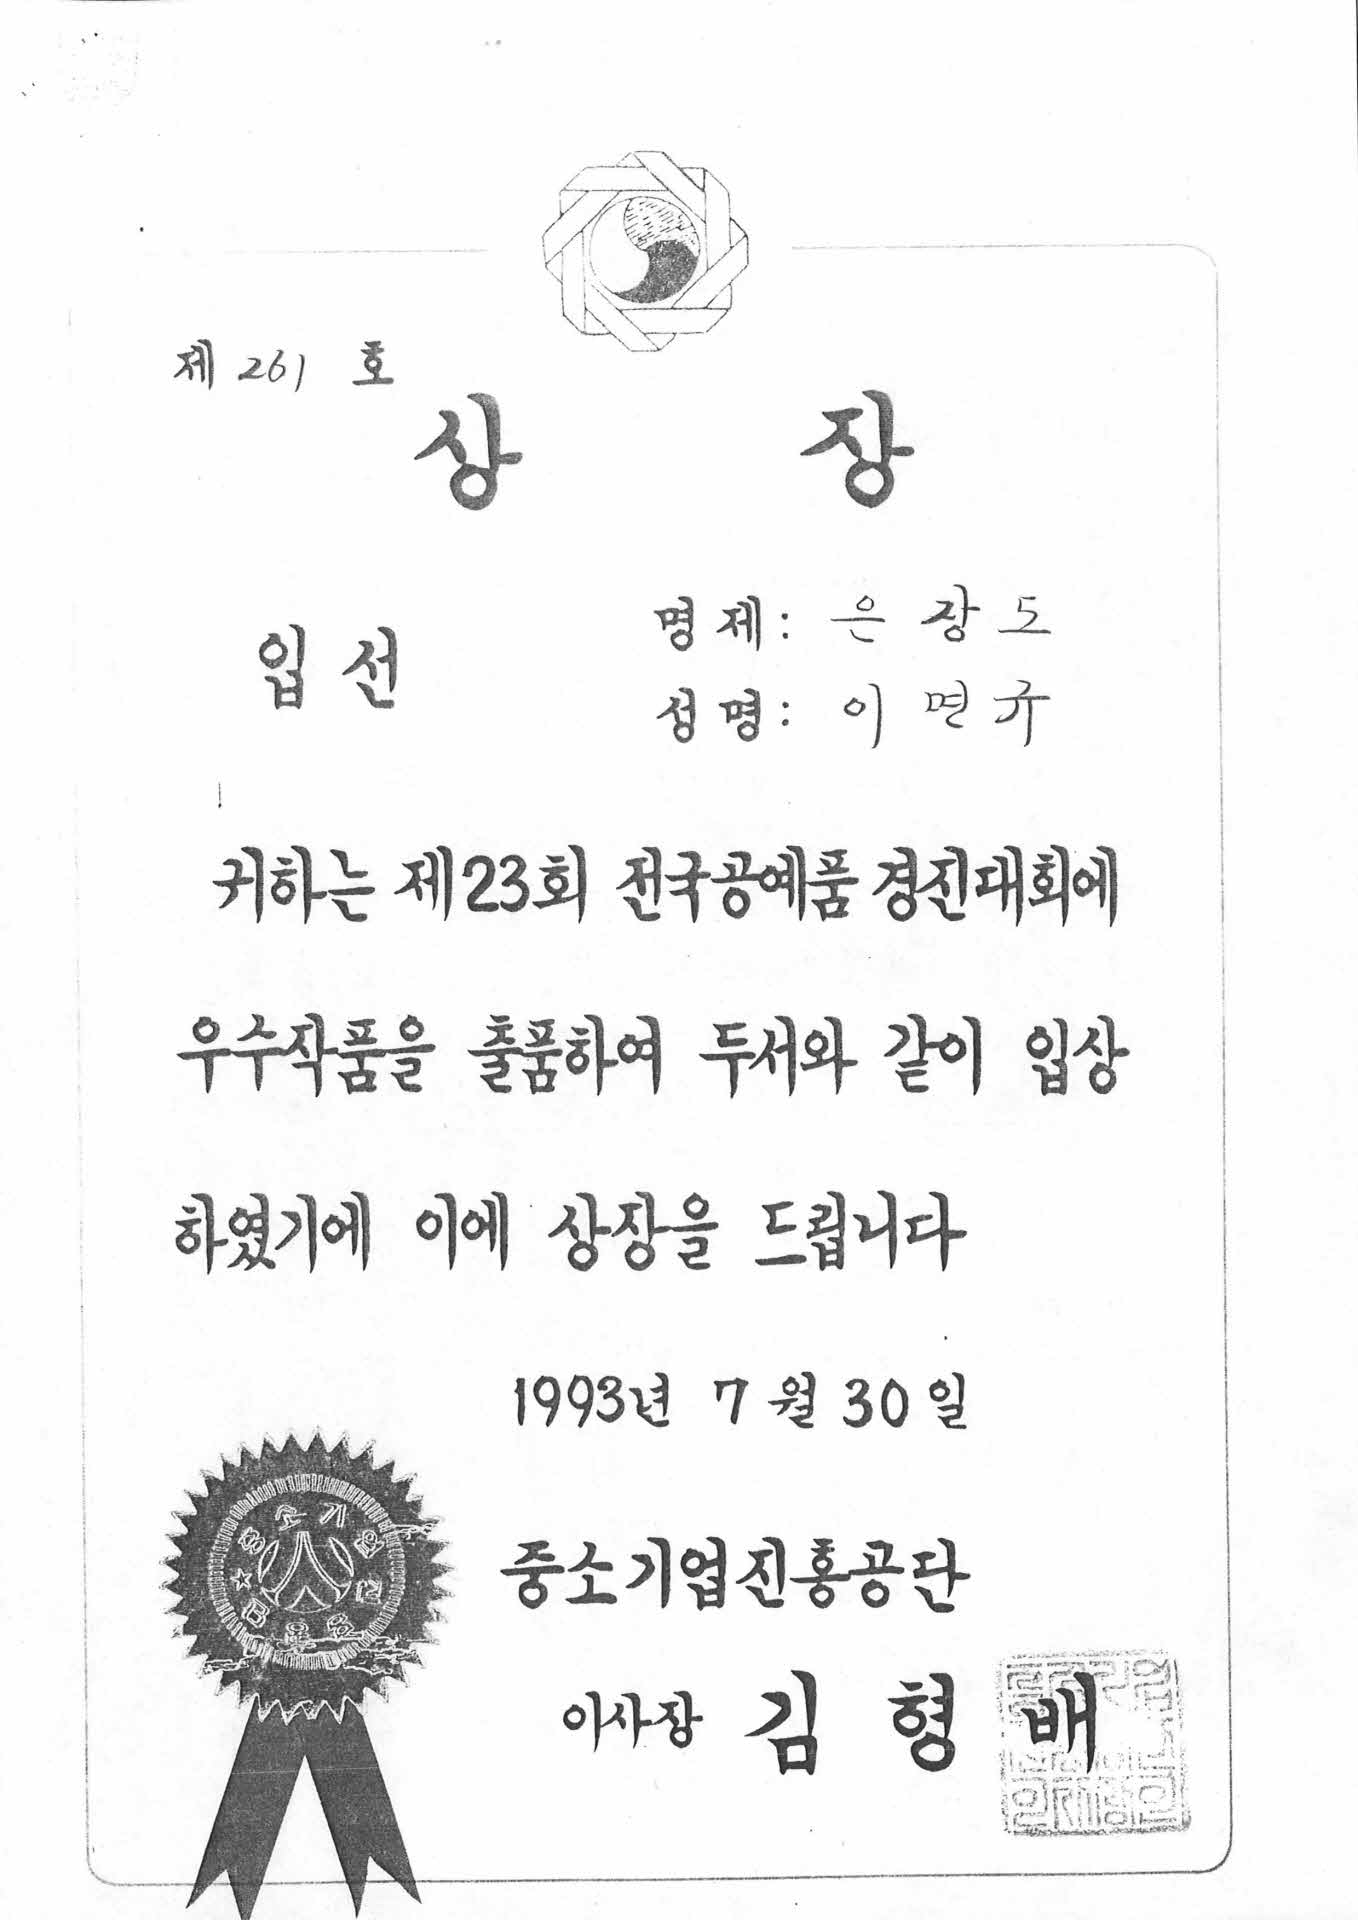 제 261 호
상 장
입선
명제: 은장도
성명: 이면규
귀하는 제23회 전국공예품 경진대회에
우수작품을 출품하여 두서와 같이 입상
하였기에 이에 상장을 드립니다
1993년 7월 30일
중소기업진흥공단
이사장 김형배